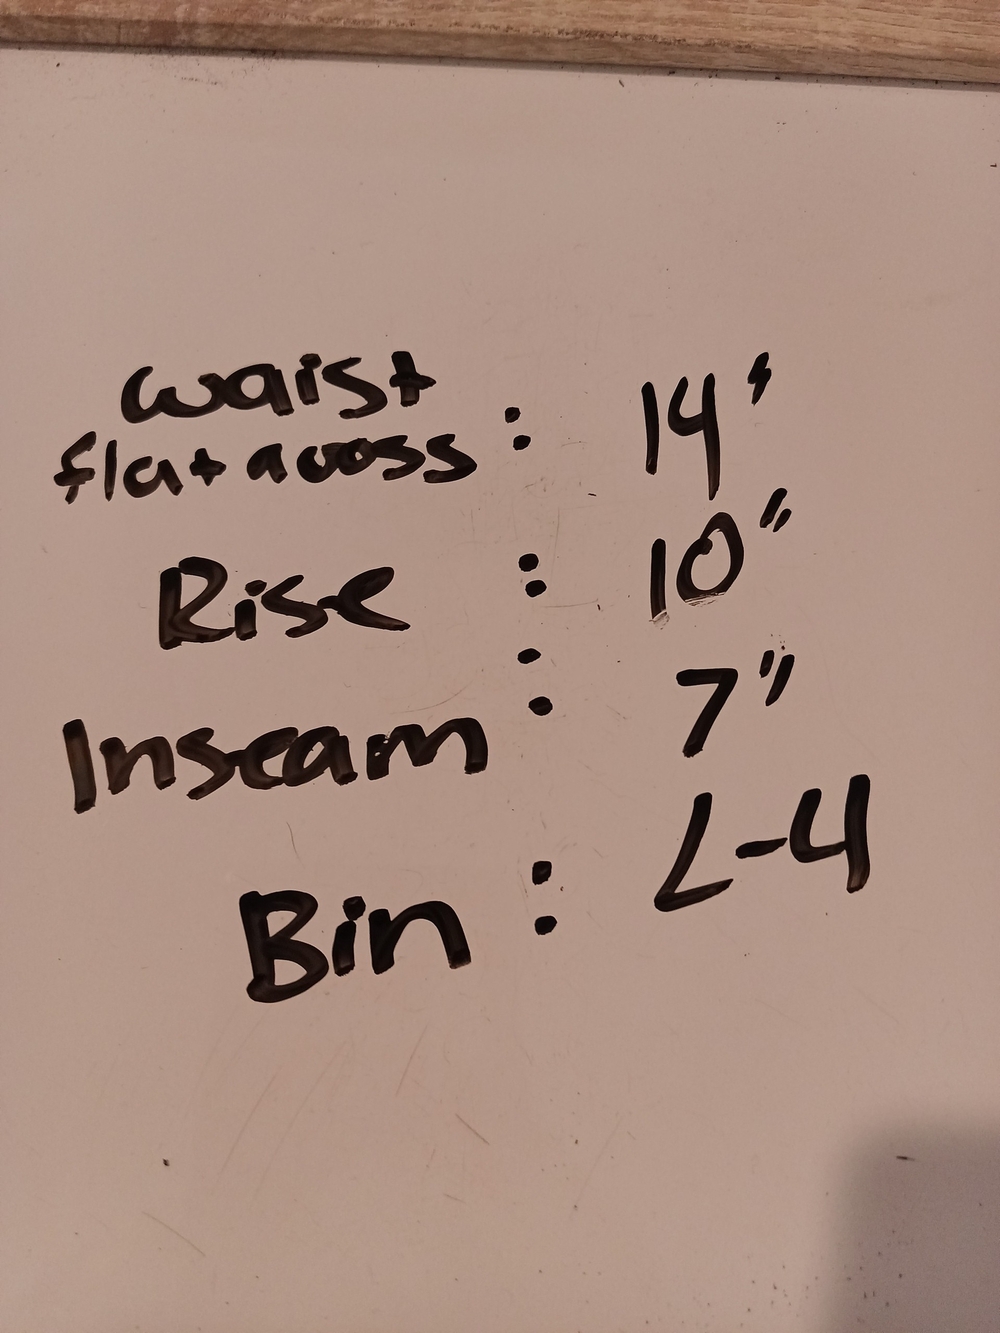 waist
flat across : 14"
Rise : 10"
Inseam : 7"
Bin : L-4